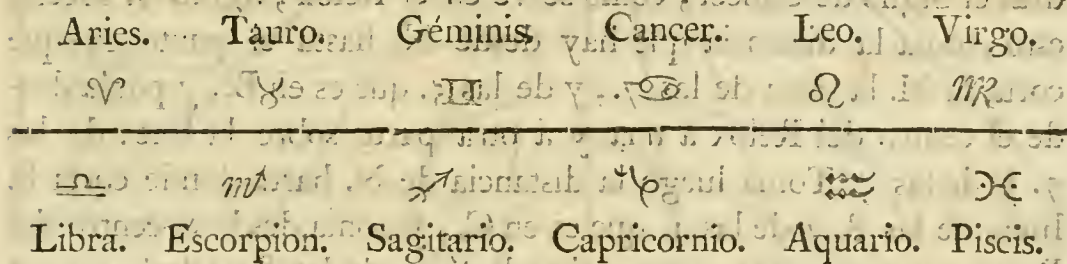 Aries. Tauro. Géminis. Cancer. Leo. Virgo.
♈ ♉ ♊ ♋ ♌ ♍
♎ ♏ ♐ ♑ ♒ ♓
Libra. Escorpion. Sagitario. Capricornio. Aquario. Piscis.